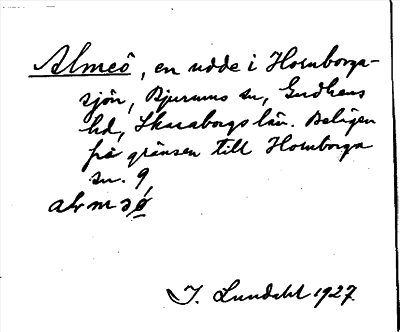 Almeö, en udde i Hornborga-
sjön, Bjurums sn, Gudhems
hd, Skaraborgs län. Belägen
på gränsen till Hornborga
sn. 9
J. Lundahl 1927.